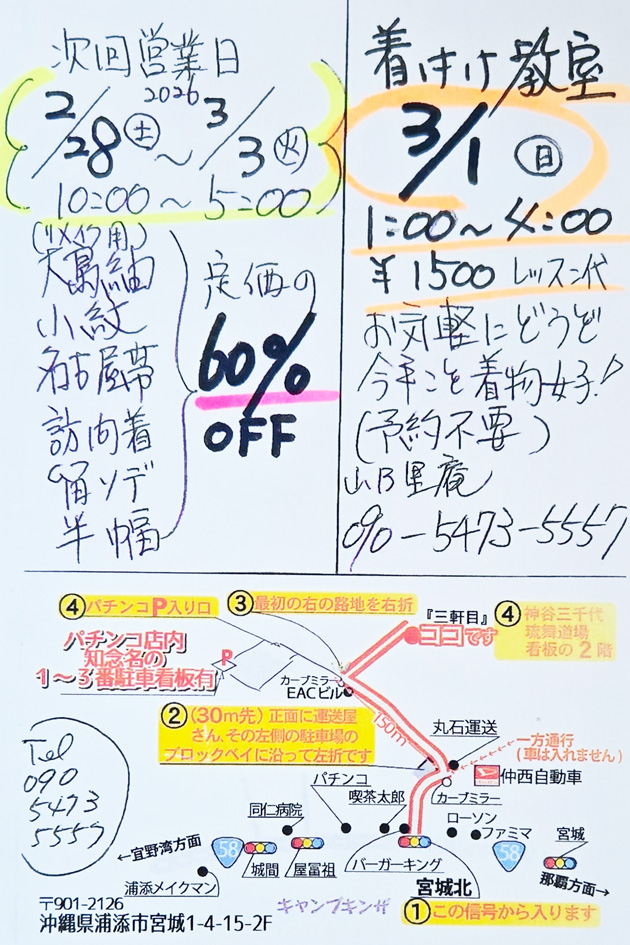 次回営業日
2026
2/28(土)～3/3(火)
10:00～5:00
(リメイク用)
大島紬
小紋
名古屋帯
訪問着
留ソデ
半幅
定価の
60%
OFF
着付け教室
3/1(日)
1:00～4:00
¥1500 レッスン代
お気軽にどうぞ
今年こそ着物女子!
(予約不要)
090-5473-5557
④パチンコP入り口
③最初の右の路地を右折
『三軒目』
ココです
④神谷三千代
琉舞道場
看板の2階
パチンコ店内
知念名の
1～3番駐車看板有
P
カーブミラー
EACビル
②(30m先)正面に運送屋
さん、その左側の駐車場の
ブロックベイに沿って左折です
150m
丸石運送
一方通行
(車は入れません)
仲西自動車
カーブミラー
パチンコ
喫茶太郎
同仁病院
ローソン
ファミマ
宮城
←宜野湾方面
58
城間
屋冨祖
バーガーキング
58
那覇方面→
浦添メイクマン
宮城北
キャンプキンザー
①この信号から入ります
Tel
090
5473
5557
〒901-2126
沖縄県浦添市宮城1-4-15-2F